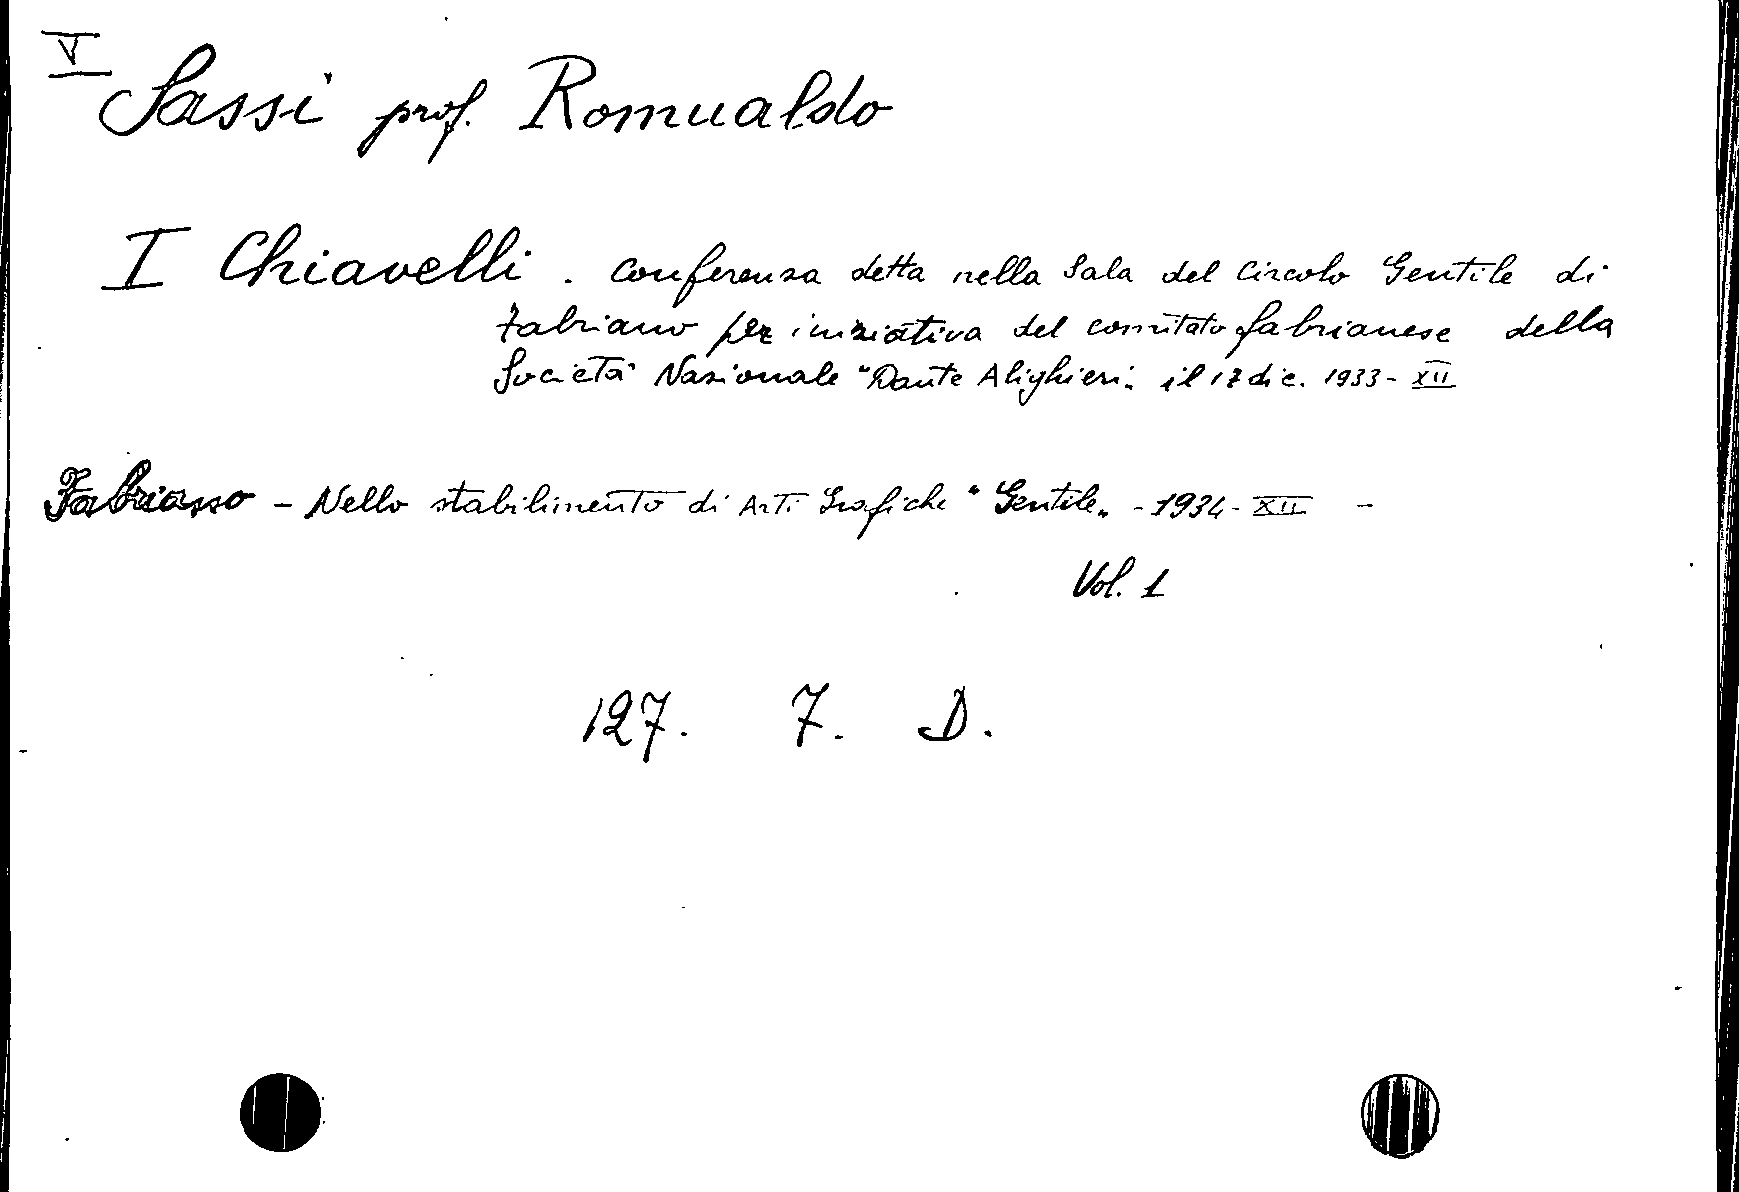 V
Sassi prof. Romualdo
I Chiavelli. Conferenza detta nella Sala del Circolo Gentile di
Fabriano per iniziativa del comitato fabrianese della
Società Nazionale "Dante Alighieri" il 17 dic. 1933-XII
Fabriano - Nello stabilimento di Arti Grafiche "Gentile" - 1934-XII -
Vol. 1
127. 7. D.